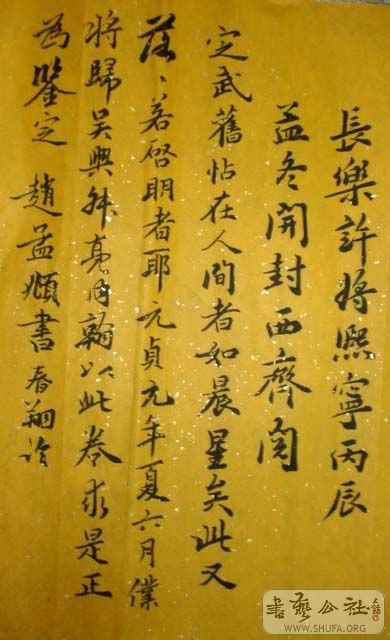 長樂許將熙寧丙辰
孟冬開封西齊閱
定武舊帖在人間者如晨星矣此又
落〻若啓明者耶元貞元年夏六月僕
將歸吳興叔亮内翰以此卷求是正
為鑒定 趙孟頫書 春翔臨
書藝公社
WWW.SHUFA.ORG